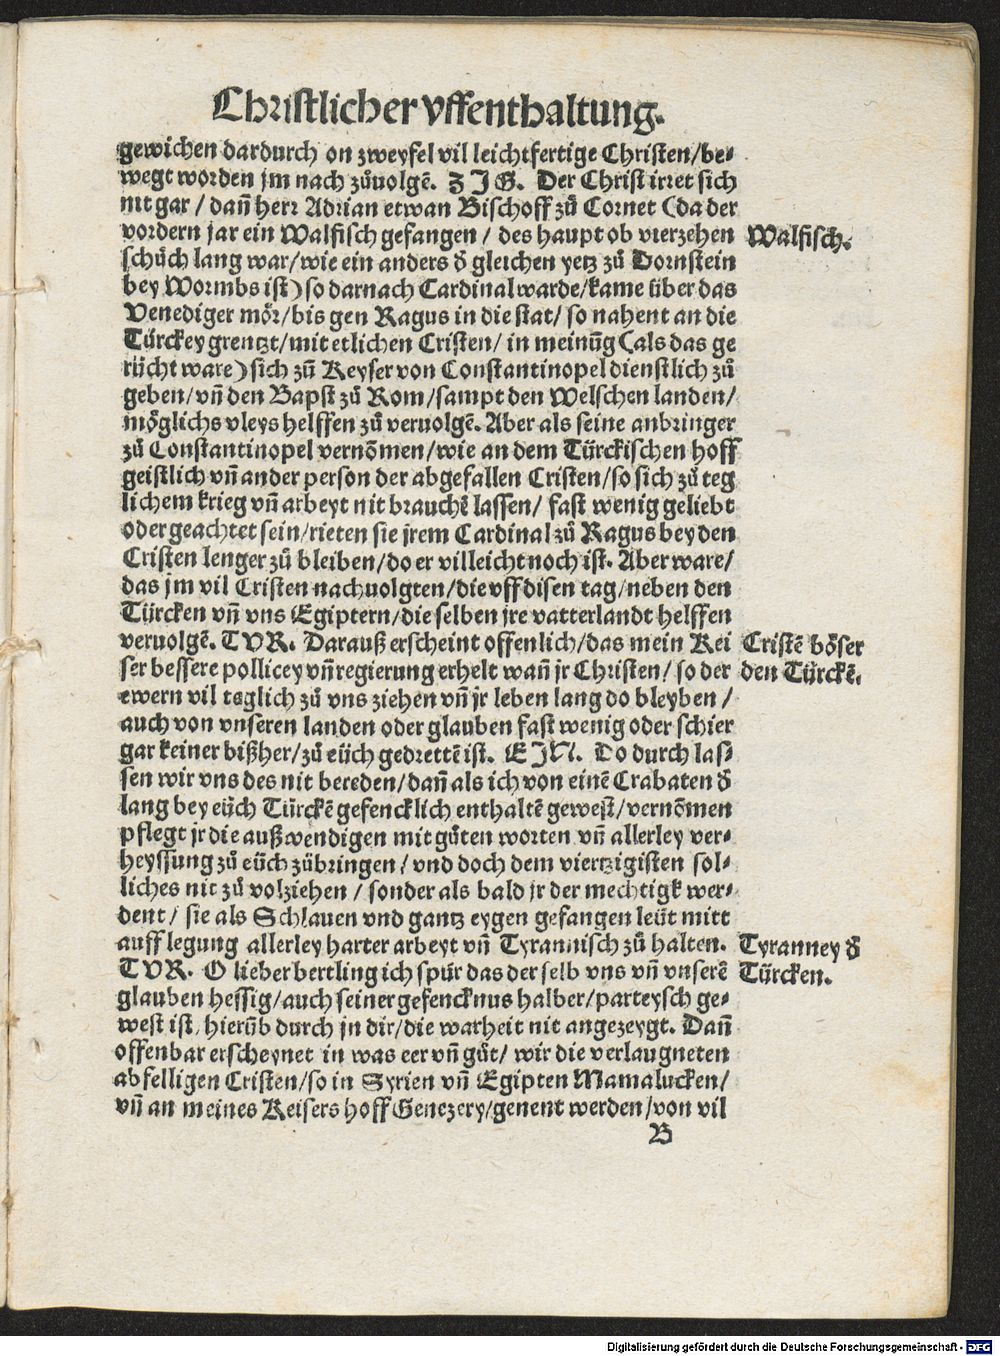 Christlicher vffenthaltung.
gewichen dardurch on zweyfel vil leichtfertige Christen/be⸗
wegt worden jm nach zůuolgẽ. Z J G. Der Christ irret sich
nit gar / dañ herr Adrian etwan Bischoff zů Cornet (da der
vordern jar ein Walfisch gefangen / des haupt ob vierzehen
Walfisch.
schůch lang war/wie ein anders ð gleichen yetz zů Dornstein
bey Wormbs ist) so darnach Cardinal warde/kame über das
Venediger mör/bis gen Ragus in die stat/ so nahent an die
Türckey grentzt/mit etlichen Cristen/ in meinũg (als das ge
rücht ware) sich zũ Keyser von Constantinopel dienstlich zů
geben/vñ den Bapst zů Rom/sampt den Welschen landen/
möglichs vleys helffen zů veruolgẽ. Aber als seine anbringer
zů Constantinopel vernõmen/wie an dem Türckischen hoff
geistlich vñ ander person der abgefallen Cristen/so sich zů teg
lichem krieg vñ arbeyt nit brauchẽ lassen/ fast wenig geliebt
oder geachtet sein/rieten sie jrem Cardinal zů Ragus bey den
Cristen lenger zů bleiben/do er villeicht noch ist. Aber ware/
das jm vil Cristen nachuolgten/die vff disen tag/neben den
Türcken vñ vns Egiptern/die selben jre vatterlandt helffen
veruolgẽ. T V R. Darauß erscheint offenlich/das mein Kei
Cristẽ böser
ser bessere pollicey vñ regierung erhelt wañ jr Christen/ so der
den Türckẽ.
ewern vil teglich zů vns ziehen vñ jr leben lang do bleyben /
auch von vnseren landen oder glauben fast wenig oder schier
gar keiner bißher/zů eüch gedrettẽ ist. E J N. Do durch las⸗
sen wir vns des nit bereden/dañ als ich von einẽ Crabaten ð
lang bey eüch Türckẽ gefencklich enthaltẽ gewest/vernõmen
pflegt jr die außwendigen mit gůten worten vñ allerley ver⸗
heyssung zů eüch zůbringen / vnd doch dem viertzigisten sol⸗
liches nit zů volziehen / sonder als bald jr der mechtigk wer⸗
dent / sie als Schlauen vnd gantz eygen gefangen leüt mitt
auff legung allerley harter arbeyt vñ Tyrannisch zů halten.
Tyranney ð
T V R. O lieber bertling ich spür das der selb vns vñ vnserẽ
Türcken.
glauben hessig/auch seiner gefencknus halber/parteysch ge⸗
west ist, hierüb durch jn dir/die warheit nit angezeygt. Dañ
offenbar erscheynet in was eer vñ gůt/ wir die verlaugneten
abfelligen Cristen/so in Syrien vñ Egipten Mamalucken/
vñ an meines Keisers hoff Genezery/genent werden/von vil
B
Digitalisierung gefördert durch die Deutsche Forschungsgemeinschaft - DFG